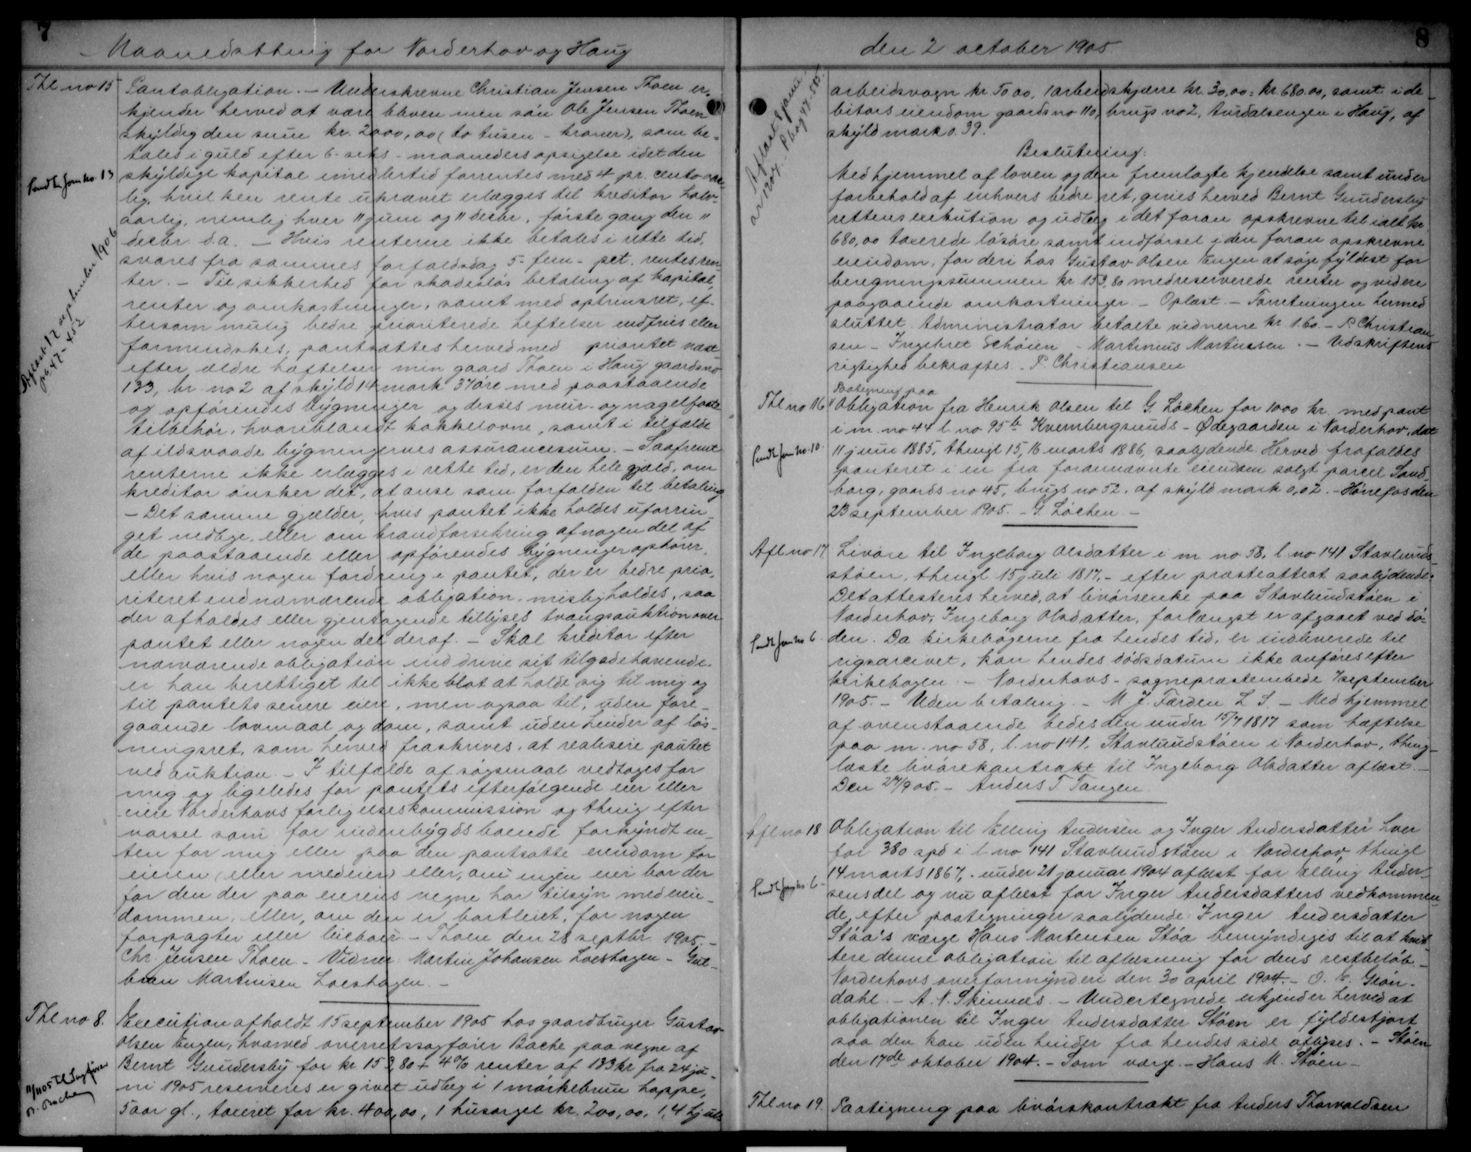 7
Maanedsthing for Norderhov og Haug
Thl no 15
Pantobligation. - Underskrevne Christian Jensen Thoen er-
kjender herved at være bleven min søn Ole Jensen Thoen
skyldig den sum kr. 2000,00 (to tusen - kroner), som be-
tales i guld efter 6-seks-maaneders opsigelse idet den
skyldige kapital imidlertid forrentes med 4 pr. cento aar-
lig, hvilken rente ukrævet erlægges til kreditor halv-
aarlig, nemlig hver 11 juni og 11 decbr, første gang den 11
decbr d.a. - Hvis renterne ikke betales i rette tid,
svares fra sammes forfaldsdag 5-fem-pct. rentesren-
ter. - Til sikkerhed for skadesløs betaling af kapital,
renter og omkostninger, samt med optrinsret, ef-
tersom mulig bedre prioriterede heftelser indfries eller
formindskes, pantsættes herved med prioritet næst
efter ældre hæftelser min gaard Thoen i Haug gaardsno
133, br. no 2 af skyld 14 mark 37 øre med paastaaende
og opførendes bygninger og disses mur- og nagelfaste
tilbehør, hvoriblandt kakkelovne, samt i tilfælde
af ildsvaade bygningernes assurancesum. - Saafremt
renterne ikke erlægges i rette tid, er den hele gjæld, om
kreditor ønsker det, at anse som forfalden til betaling
- Det samme gjælder, hvis pantet ikke holdes uforrin-
get vedlige, eller om brandforsikring af nogen del af
de paastaaende eller opførendes bygninger ophører,
eller hvis nogen fordring i pantet, der er bedre prio-
riteret end nærværende obligation misligholdes, saa
der afholdes eller gjentagende tillyses tvangsauktion over
pantet eller nogen del deraf. - Skal kreditor efter
nærværende obligation inddrive sit tilgodehavende
er han berettiget til ikke blot at holde sig til mig og
til pantets senere eiere, men ogsaa til, uden fore-
gaaende lovmaal og dom, samt uden hinder af løs-
ningsret, som herved fraskrives, at realisere pantet
ved auktion. - I tilfælde af søgsmaal vedtages for
mig og ligeledes for pantets efterfølgende eier eller
eiere Norderhovs forligelseskommission og thing efter
varsel som for indenbygds boende forkyndt en-
ten for mig eller paa den pantsatte eiendom for
eieren (eller medeier) eller, om ingen eier bor der
for den der paa eierens vegne har tilsyn med eien-
dommen, eller, om den er bortleiet, for nogen
forpagter eller leiboer - Thoen den 28 septbr 1905. -
Chr. Jensen Thoen - Vidner: Martin Johansen Loeshagen - Gul-
bran Martinsen Loeshagen. -
Thl no 8.
Execution afholdt 15 september 1905 hos gaardbruger Gustav
Olsen Engen, hvorved overretssagfører Bache paa vegne af
Bernt Gundersby for kr. 153,80 + 4% renter af 133 kr. fra 24 ju-
ni 1905 reserveres er givet udlæg i 1 mørkebrun hoppe,
5 aar gl., taxeret for kr. 400,00, 1 husorgel kr. 200,00, 1, 4 hjuls
Aflæst 12 september 1906
pb. 47 - 452
8
den 2 october 1905
arbeidsvogn kr. 50,00, 1 arbeidskjærre kr. 30,00 = kr 680,00, samt i de-
bitors eiendom gaards no 110, brugs no 2, Aurdalsengen i Haug, af
skyld mark 0.39.
Beslutning:
Med hjemmel af loven og den fremlagte kjendelse samt under
forbehold af enhvers bedre ret, gives herved Bernt Gundersby
rettens exekution og udlæg i det foran opskrevne til ialt kr
680,00 taxerede løsøre samt indførsel i den foran opskrevne
eiendom, for deri hos Gustav Olsen Engen at søge fyldest for
beregningssummen kr 153,80 med reserverede renter og videre
paagaaende omkostninger. - Oplæst. - Forretningen hermed
sluttet. Administrator betalte vidnerne kr 1.60. - P. Christian-
sen - Ingebret Schøien - Martinius Martinssen. - Udskriftens
rigtighed bekræftes. P. Christiansen
Thl no 16
Paategning paa
Obligation fra Henrik Olsen til G. Løchen for 1000 kr. med pant
i m. no 44 l. no 95 b Kvernbergsunds-Ødegaarden i Norderhov, dat
11 juni 1885, thingl 15, 16 marts 1886, saalydende. Herved frafaldes
panteret i en fra forannævnte eiendom solgt parcel Sand-
borg, gaards no 45, brugs no 52, af skyld mark 0,02. - Hønefos den
23 september 1905. - G. Løchen. -
Afl no 17
Livøre til Ingeborg Olsdatter i m no 58, l. no 141 Stavlunds-
støen, thingl 15 juli 1817. - efter præsteattest saalydende:
Det attesteres herved, at livørsenke paa Stavlundstøen i
Norderhov, Ingeborg Olsdatter, forlængst er afgaaet ved dø-
den. Da kirkebøgerne fra hendes tid, er indleverede til
rigsarcivet, kan hendes dødsdatum ikke anføres efter
kirkebogen. - Norderhovs-sogneprestembede 7 september
1905. - Uden betaling. - M. J. Færden L. S. - Med hjemmel
af ovenstaaende bedes den under 15/7 1817 som hæftelse
paa m. no 58, l. no 141, Stavlundstøen i Norderhov, thing-
læste livørekontrakt til Ingeborg Olsdatter aflæst. -
Den 27/9 05. - Anders T. Tangen.
Afl no 18
Obligation til Elling Andersen og Inger Andersdatter hver
for 380 spd i l. no 141 Stavlundstøen i Norderhov, thingl
14 marts 1867. under 21 januar 1904 aflæst for Elling Ander-
sens del og nu aflæst for Inger Andersdatters vedkommen-
de, efter paategninger saalydende: Inger Andersdatter
Støa's værge Hans Mortensen Støa bemyndiges til at kvit-
tere denne obligation til aflæsning for dens restbeløb. -
Norderhovs overformynderi den 30 april 1904. - O. E. Grøn-
dahl. - A. N. Skinnes. - Undertegnede erkjender herved at
obligationen til Inger Andersdatter Støen er fyldestgjort
saa den kan uden hinder fra hendes side aflyses. - Støen
den 17de oktober 1904. - Som værge. - Hans M. Støen. -
Thl no 19.
Paategning paa livørskontrakt fra Anders Thorvaldsen